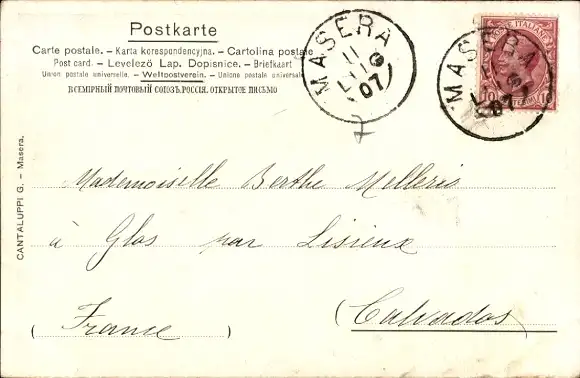 Postkarte
Carte postale. – Karta korespondencyjna. – Cartolina postale
Post card. – Levelező Lap. Dopisnice. – Briefkaart
Union postale universelle. – Weltpostverein. – Unione postale universale
ВСЕМІРНЫЙ ПОЧТОВЫЙ СОЮЗЪ.РОССІЯ. ОТКРЫТОЕ ПИСЬМО
MASERA
07
POSTE ITALIANE
10 10
MASERA
07
CANTALUPPI G. – Masera.
Mademoiselle Berthe Melleris
à Glos par Lisieux
(Calvados)
(France)